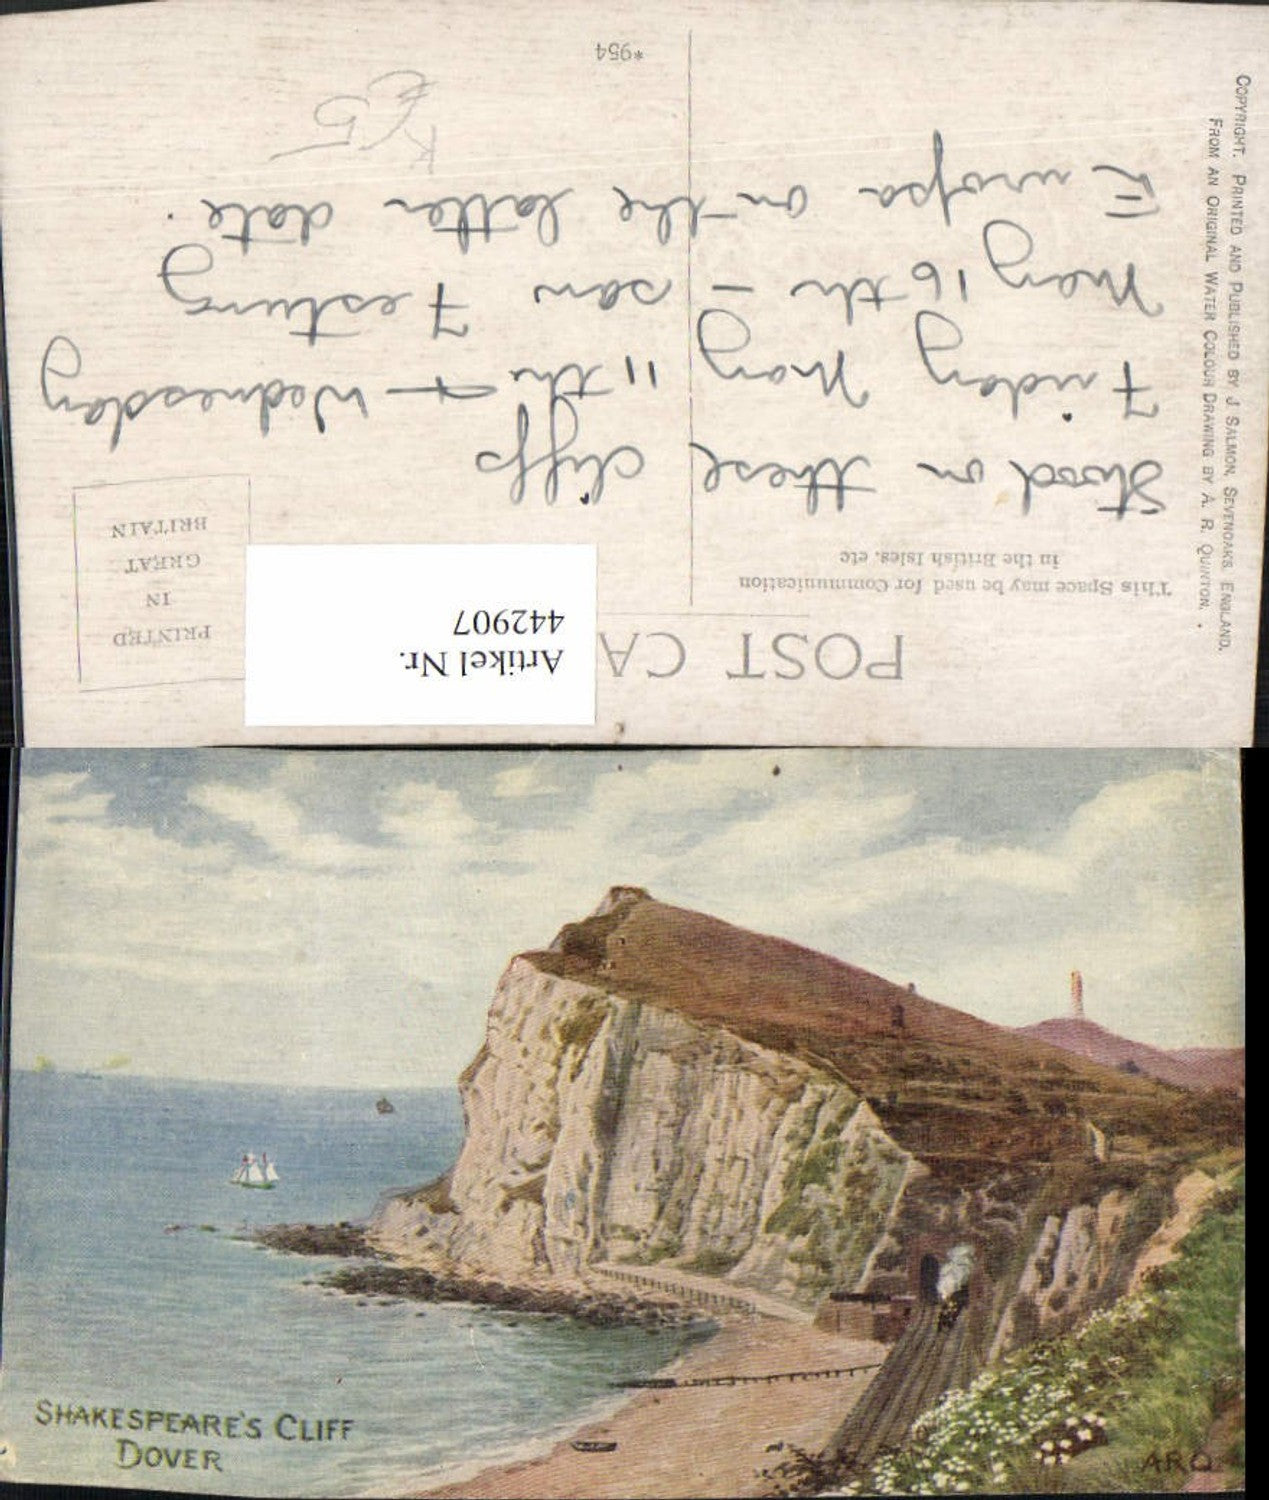 POST CA
This Space may be used for Communication
in the British Isles, etc
PRINTED
IN
GREAT
BRITAIN
Artikel Nr.
442907
Stood on these cliffs
Friday May 11th + Wednesday
May 16th - saw Festung
Europa on the latter date.
K £5
*954
COPYRIGHT. PRINTED AND PUBLISHED BY J SALMON, SEVENOAKS, ENGLAND.
FROM AN ORIGINAL WATER COLOUR DRAWING BY A. R. QUINTON.
SHAKESPEARE'S CLIFF
DOVER
ARQ